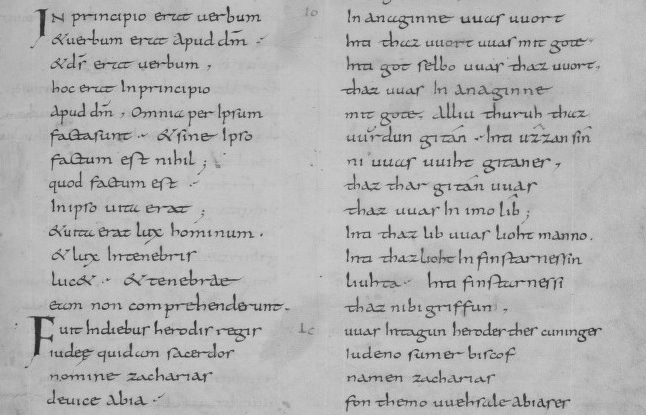 IN principio erat uerbum
&uerbum erat apud dm̄
&ds̄ erat uerbum,
hoc erat Inprincipio
apud dm̄, Omnia per Ipsum
factasunt · &sine Ipso
factum est nihil;
quod factum est
Inipso uita erat;
&uita erat lux hominum.
& lux Intenebris
luc& · & tenebrae
eam non comprehenderunt.
Fuit Indiebus herodis regis
iudeę quidam sacerdos
nomine zacharias
deuice abia
Io
In anaginne uuas uuort
Inti thaz uuort uuas mit gote
Inti got selbo uuas thaz uuort.
thaz uuas In anaginne
mit gote. Alliu thuruh thaz
uuŕdun gitán · Inti ûzzan sîn
ni uuas uuiht gitanes,
thaz thar gitán uuas
thaz uuas In imo lîb;
Inti thaz lib uuas lioht manno.
Inti thaz lioht In finstarnessin
liuhta · Inti finstarnessi
thaz nibigriffun,
Lc
uuas Intagun herodes thes cuninges
Iudeno sumer biscof
namen zacharias
fon themo uuehsale abiases